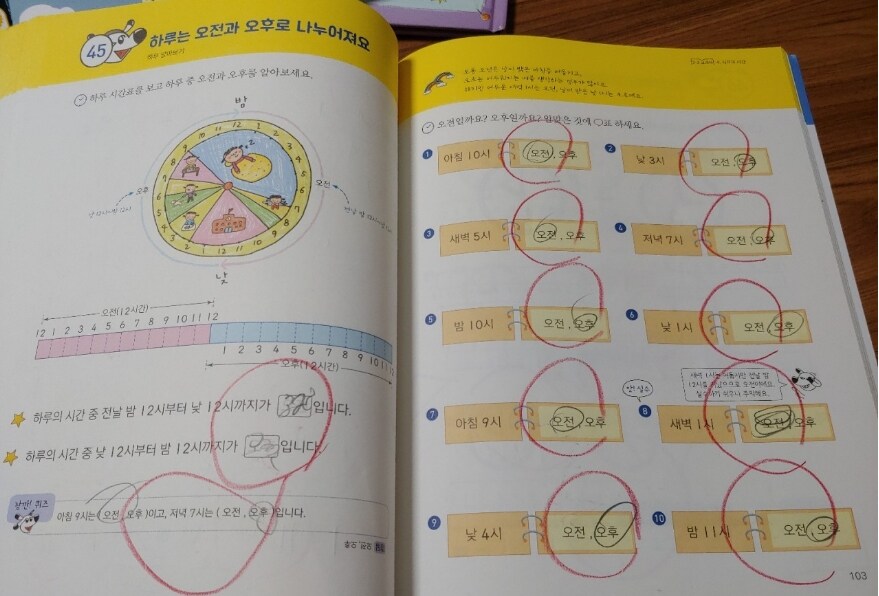 45
하루는 오전과 오후로 나누어져요
하루 시간표를 보고 하루 중 오전과 오후를 알아보세요.
밤
오후
오전
낮
오전(12시간)
12 1 2 3 4 5 6 7 8 9 10 11 12
1 2 3 4 5 6 7 8 9 10 11 12
오후(12시간)
하루의 시간 중 전날 밤 12시부터 낮 12시까지가 입니다.
하루의 시간 중 낮 12시부터 밤 12시까지가 입니다.
잠깐! 퀴즈
아침 9시는 (오전, 오후)이고, 저녁 7시는 (오전, 오후)입니다.
오전일까요? 오후일까요? 알맞은 것에 ○표 하세요.
1 아침 10시 오전, 오후
2 낮 3시 오전, 오후
3 새벽 5시 오전, 오후
4 저녁 7시 오전, 오후
5 밤 10시 오전, 오후
6 낮 1시 오전, 오후
7 아침 9시 오전, 오후
앗! 실수
8 새벽 1시 오전, 오후
9 낮 4시 오전, 오후
10 밤 11시 오전, 오후
103